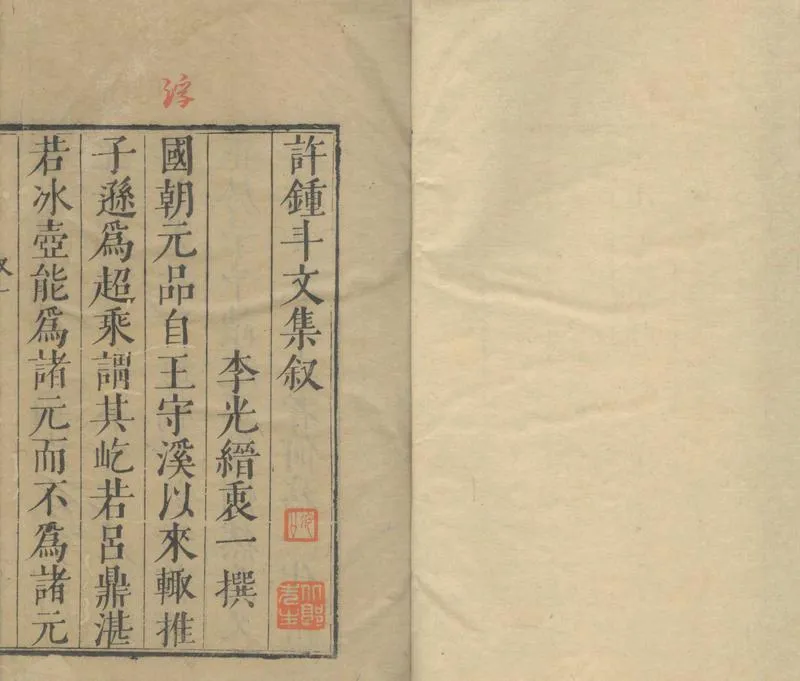 許鍾斗文集叙
李光縉衷一撰
國朝元品自王守溪以來輙推
子遜爲超乘謂其屹若呂鼎湛
若冰壺能爲諸元而不爲諸元